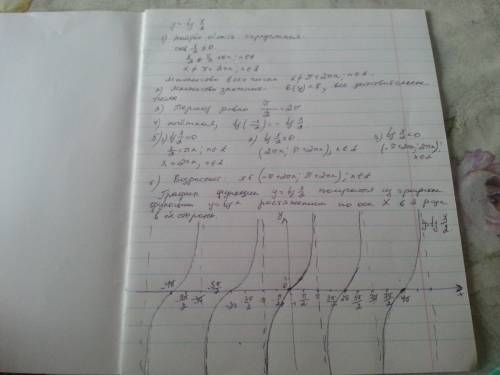 y = tg x/2
1) Найдём область определения.
cos x/2 ≠ 0
x/2 ≠ π/2 + πn; n∈Z
x ≠ π + 2πn; n∈Z
Множество всех чисел x ≠ π + 2πn, n∈Z.
2) Множество значений E(y) = R, все действительные
числа
3) Период равен π/(1/2) = 2π
4) нечётная, tg(-x/2) = -tg x/2
5) 1) tg x/2 = 0 2) tg x/2 > 0 3) tg x/2 < 0
x/2 = πn; n∈Z (2πn; π + 2πn), n∈Z (-π + 2πn; 2πn);
x = 2πn, n∈Z n∈Z
6) Возрастает: x∈(-π + 2πn; π + 2πn); n∈Z
График функции y = tg x/2 получается из графика
функции y = tg x растяжением по оси X в 2 раза
в обе стороны.
y y = tg x/2
-4π -3π -2π π/2 2π 3π 4π x